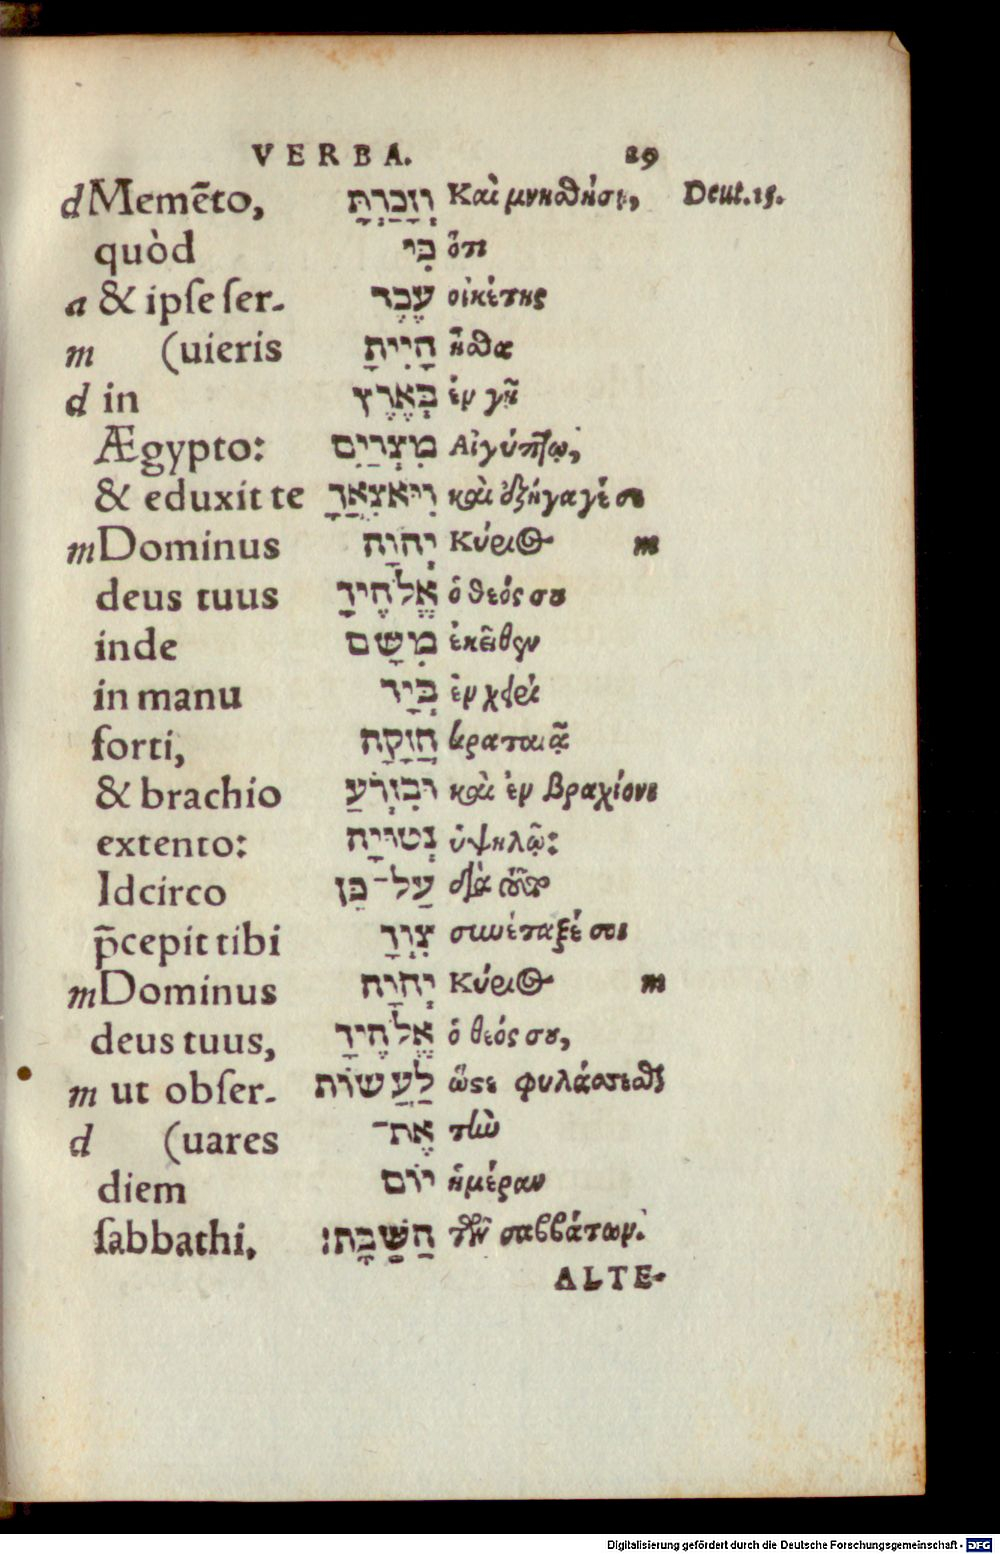 VERBA. 89
dMemẽto, וְזָכַרְתָּ Καὶ μνησθήσῃ, Deut. 15.
quòd כִּי ὅτι
a & ipſe ſer- עֶבֶד οἰκέτης
m (uieris הָיִיתָ ἦσθα
d in בְּאֶרֶץ ἐν γῇ
Ægypto: מִצְרַיִם Αἰγύπτῳ,
& eduxit te וַיּוֹצִאֲךָ καὶ ἐξήγαγέ σε
mDominus יְהוָה Κύριος m
deus tuus אֱלֹהֶיךָ ὁ θεός σου
inde מִשָּׁם ἐκεῖθεν
in manu בְּיָד ἐν χειρὶ
forti, חֲזָקָה κραταιᾷ
& brachio וּבִזְרֹעַ καὶ ἐν βραχίονι
extento: נְטוּיָה ὑψηλῷ:
Idcirco עַל־כֵּן διὰ τοῦτο
p̃cepit tibi צִוְּךָ συνέταξέ σοι
mDominus יְהוָה Κύριος m
deus tuus, אֱלֹהֶיךָ ὁ θεός σου,
m ut obſer- לַעֲשׂוֹת ὥστε φυλάσσεσθαι
d (uares אֶת־ τὴν
diem יוֹם ἡμέραν
ſabbathi. הַשַּׁבָּת׃ τῶν σαββάτων.
ALTE-
Digitalisierung gefördert durch die Deutsche Forschungsgemeinschaft - DFG